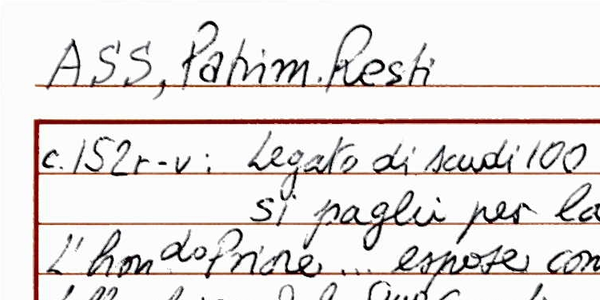 ASS, Patrim. Resti
c.152r-v: Legato di scudi 100
si paghi per la
L'hon.do Priore... espose con